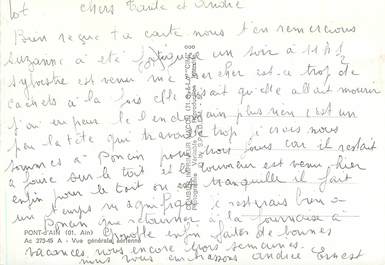 lot chers Tante et André
Bien reçue ta carte nous t'en remercions
suzanne a été fatiguée un soir à 11 h ½
sylvestre est venu me chercher est-ce trop de
cachets à la fois elle disait qu'elle allait mourir
j'ai eu peur le lendemain plus rien c'est un
peu la tête qui travaille trop je crois nous
sommes à Poncin pour trois jours car il restait
à faire sur le toit et le couvreur est venu hier
enfin pour le toit on est tranquille il fait
un temps magnifique je resterais bien à
Poncin que retourner à la fournaise à
PONT-D'AIN (01. Ain)
Ac 273-45 A - Vue générale aérienne
enfin faites de bonnes
vacances nous encore trois semaines.
nous vous embrassons andrée Ernest